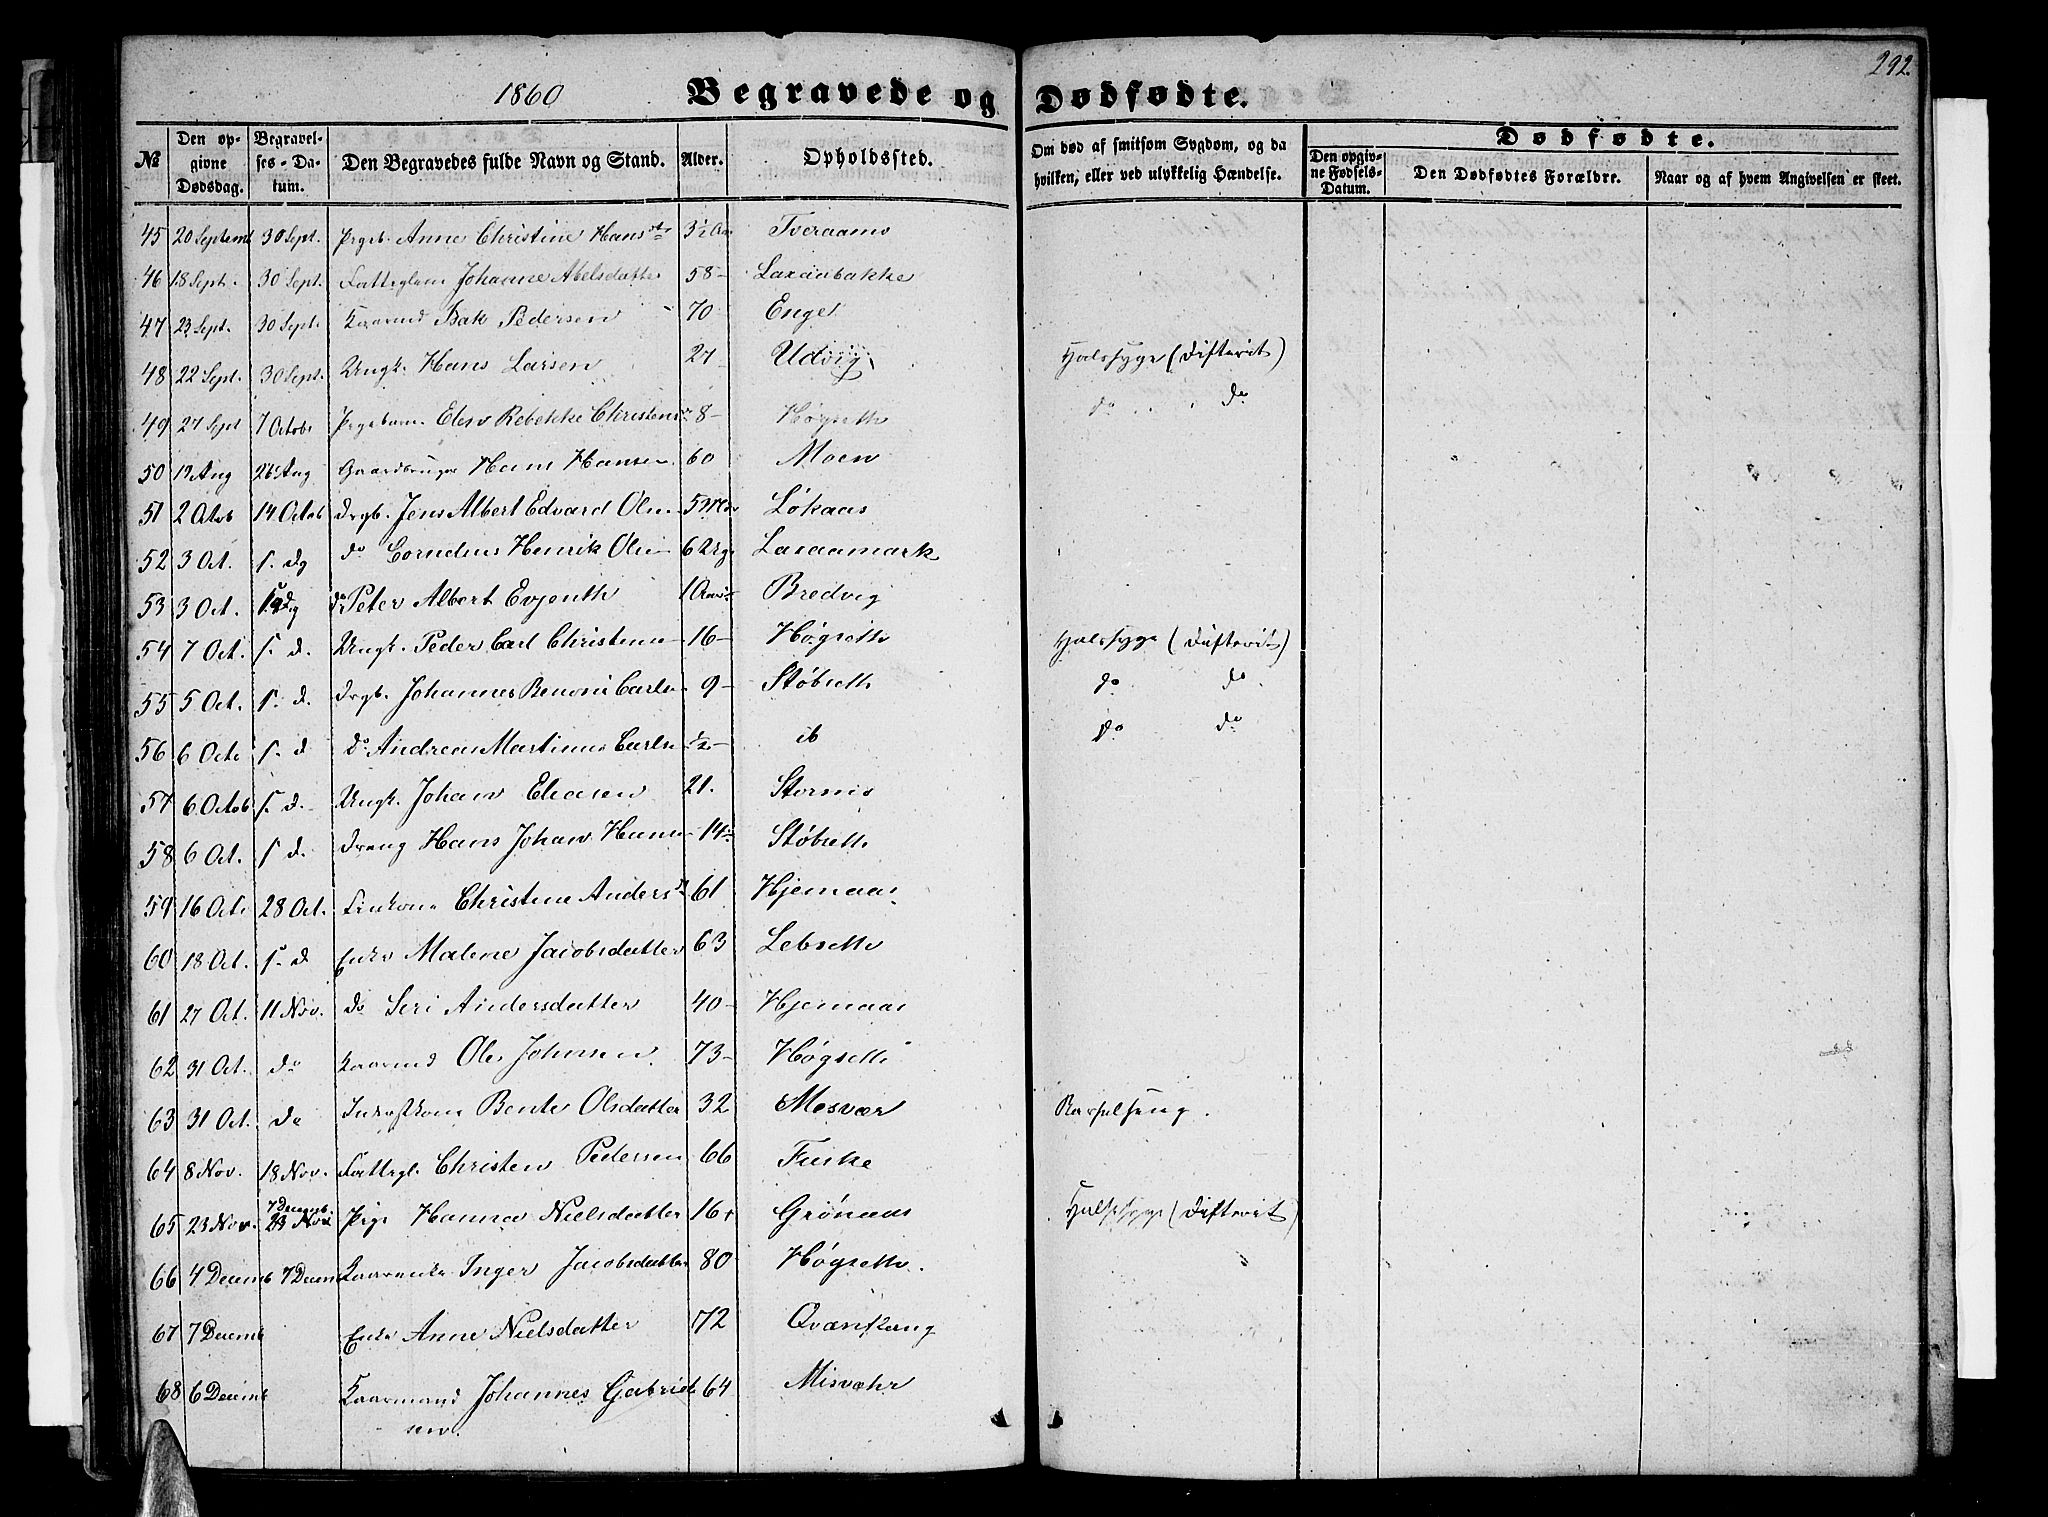 292
1860 Begravede og Dødfødte.
№ Den opgivne Dødsdag. Begravelses-Datum. Den Begravedes fulde Navn og Stand. Alder. Opholdssted. Om død af smitsom Sygdom, og da hvilken, eller ved ulykkelig Hændelse. Dødfødte. Den opgivne Fødsels-Datum. Den Dødfødtes Forældre. Naar og af hvem Angivelsen er skeet.
45 20 Septemb 30 Sept. Pigeb. Anne Christine Hansdtr 3½ Aar Tveraamo
46 18 Sept. 30 Sept. Fattiglem Johanne Abelsdatter 58 - Laxaabakke
47 23 Sept. 30 Sept. Kaarmd Isak Pedersen 70 Enget
48 22 Sept. 30 Sept. Ungk. Hans Larsen 27 Udvig Halssyge (Difterit)
49 27 Sept 7 Octobr Pigebarn Elen Rebekke Christens 8 - Høgseth do do
50 19 Aug 26 Aug Gaardbruger Hans Hansen 60 Moen
51 2 Octob 14 Octob Drgb. Jens Albert Edvard Olsen 5 Mdr Løkaas
52 3 Oct. s. dg do Cornelius Henrik Olsen 6 Uger Laxaamark
53 3 Oct. s. Dg do Peter Albert Evjenth 1 Aar Bredvig
54 7 Oct. s. d. Ungk. Peder Carl Christensen 16 - Høgseth Halssyge (Difterit)
55 5 Oct. s. d. Drgb. Johannes Benoni Carls 9 - Støbseth do do
56 6 Octr s. d do Andreas Martinus Carls ½ - ib do do
57 6 Octob s. d. Ungk. Johan Eliasen 21. Stornis
58 6 Oct. s d. Dreng Hans Johan Hansen 14 Støbseth
59 16 Octr 28 Oct. Christine Andersd 61 Hjemaas
60 18 Oct. s. d Enke Malene Jacobsdatter 63 Lebseth
61 27 Oct. 11 Nov. do Seri Andersdatter 40 - Hjemaas
62 31 Oct. do Kaarmd Ole Johnsen 73 - Høgseth
63 31 Oct. do Inderstkone Bente Olsdatter 32 Mosvær Barselseng.
64 8 Nov. 18 Nov. Fattigl. Christen Pedersen 66 Fuske
65 23 Nov. 7 Decemb. 23 Nov Pige Hanna Nielsdatter 16 Grønaas Halssyge (Difterit)
66 4 Decemb 7 Decem Kaarenke Inger Jacobsdatter 80 Høgseth.
67 7 Decemb Enke Anne Nielsdatter 72 Qvænflaug
68 6 Decemb Kaarmand Johannes Gabriel 64 Misvæhr
sen.